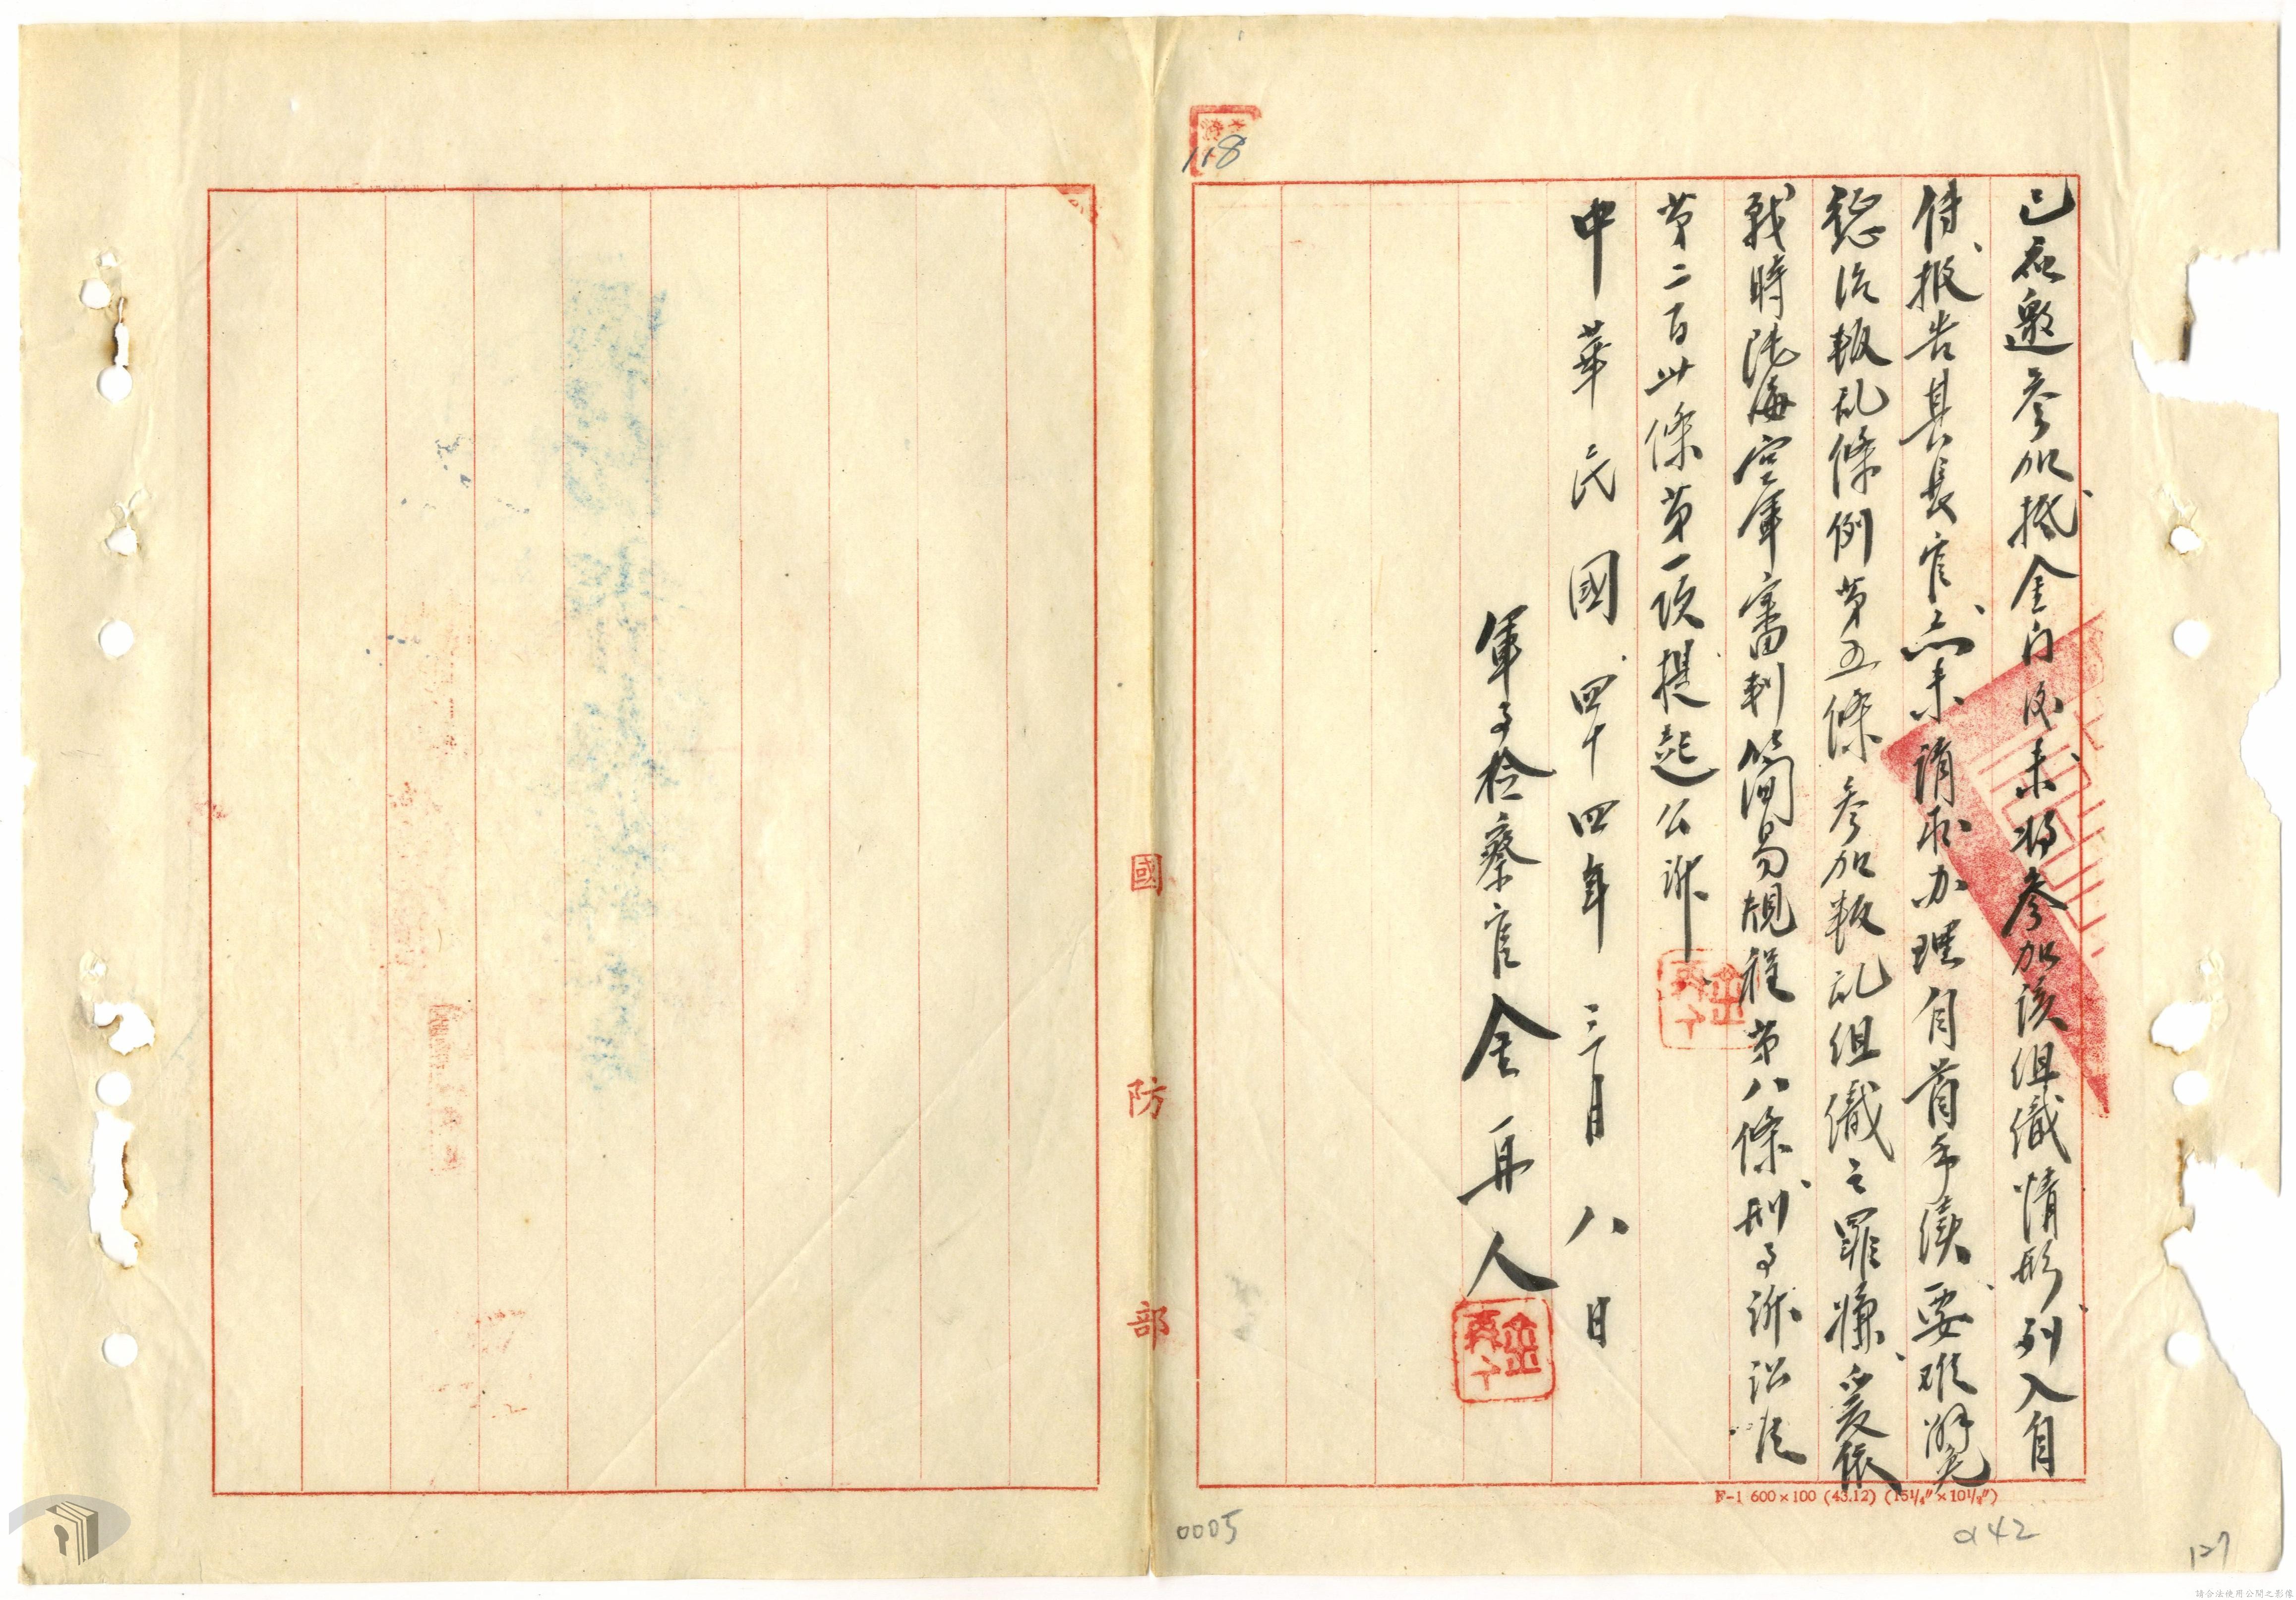 已被邀參加抵金門後未將參加該組織情形列入自
傳報告其長官亦未請求办理自首手續要难辭免
懲治叛乱條例第五條參加叛乱組織之罪嫌爰依
戰時陸海空軍審判簡易規程第八條刑事訴訟法
第二百卅條第一項提起公訴
中華民國四十四年三月八日
軍事检察官金再人
國防部
118
F-1 600×100 (43.12) (15¼″×10½″)
0005
a42
127
請合法使用公開之影像